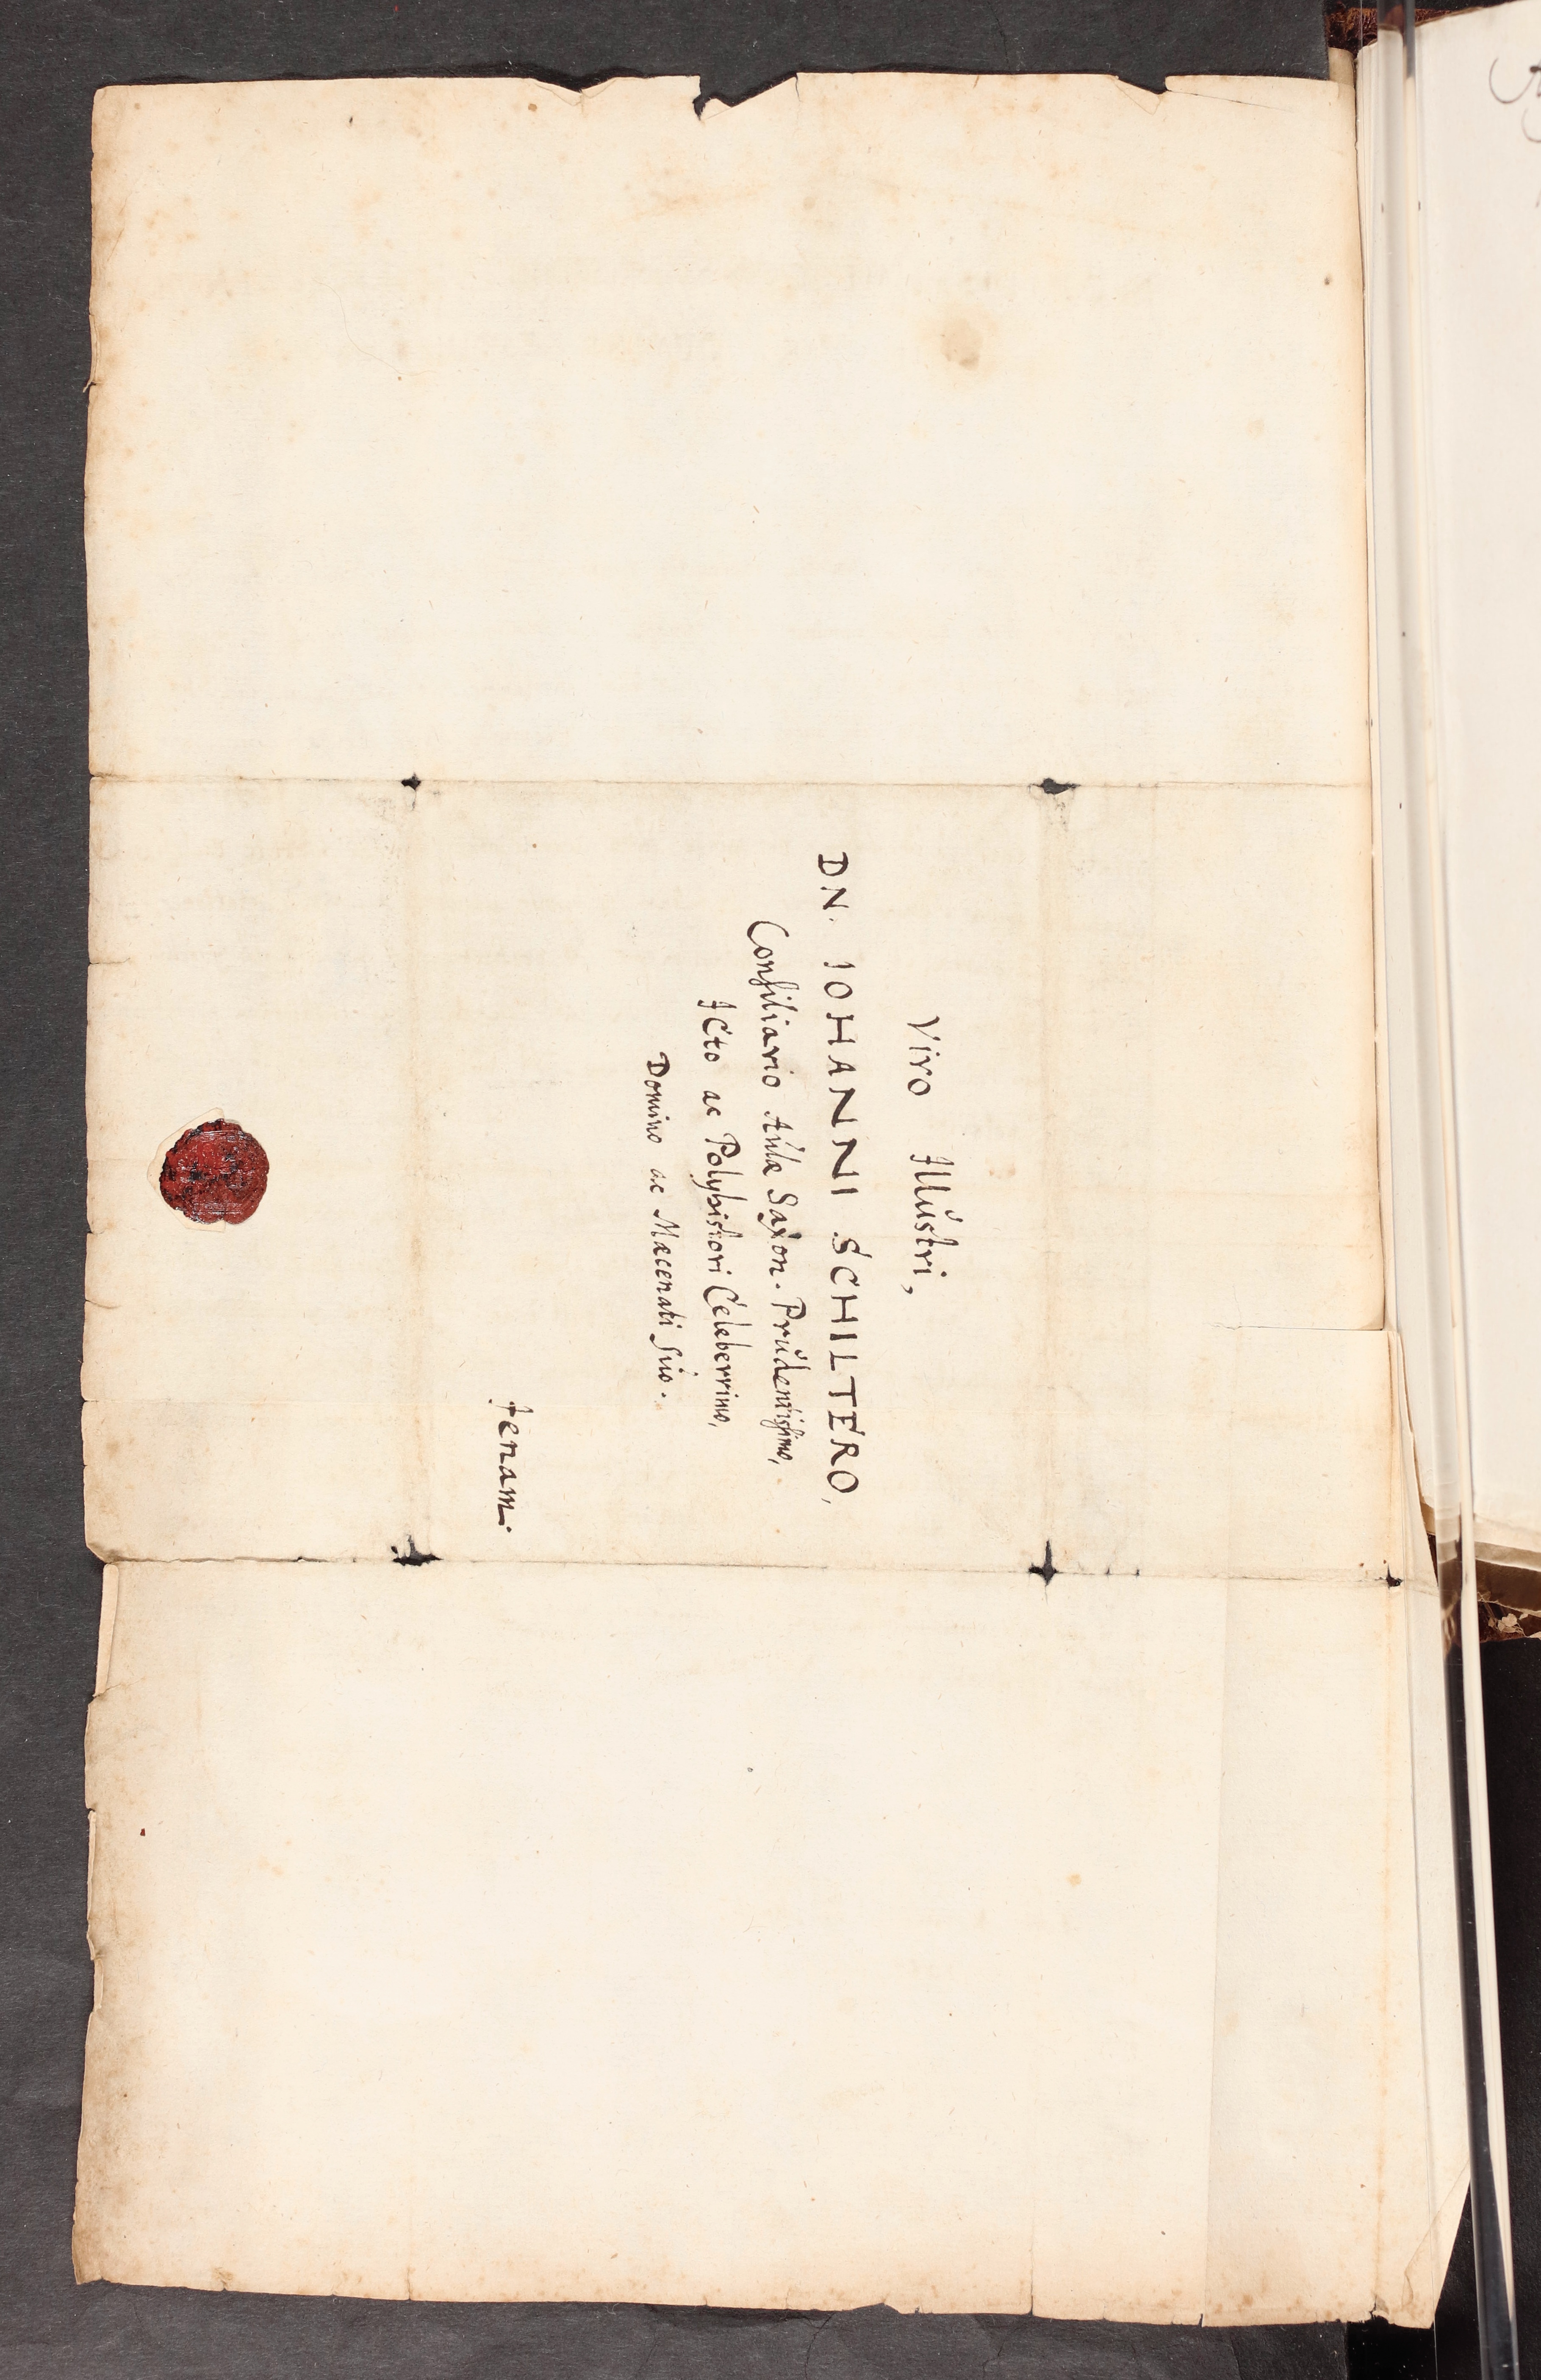 Viro Illustri,
DN. IOHANNI SCHILTERO,
Consiliario Aulæ Saxon. Prudentissimo,
ICto ac Polyhistori Celeberrimo,
Domino ac Mæcenati suo.
Jenam.